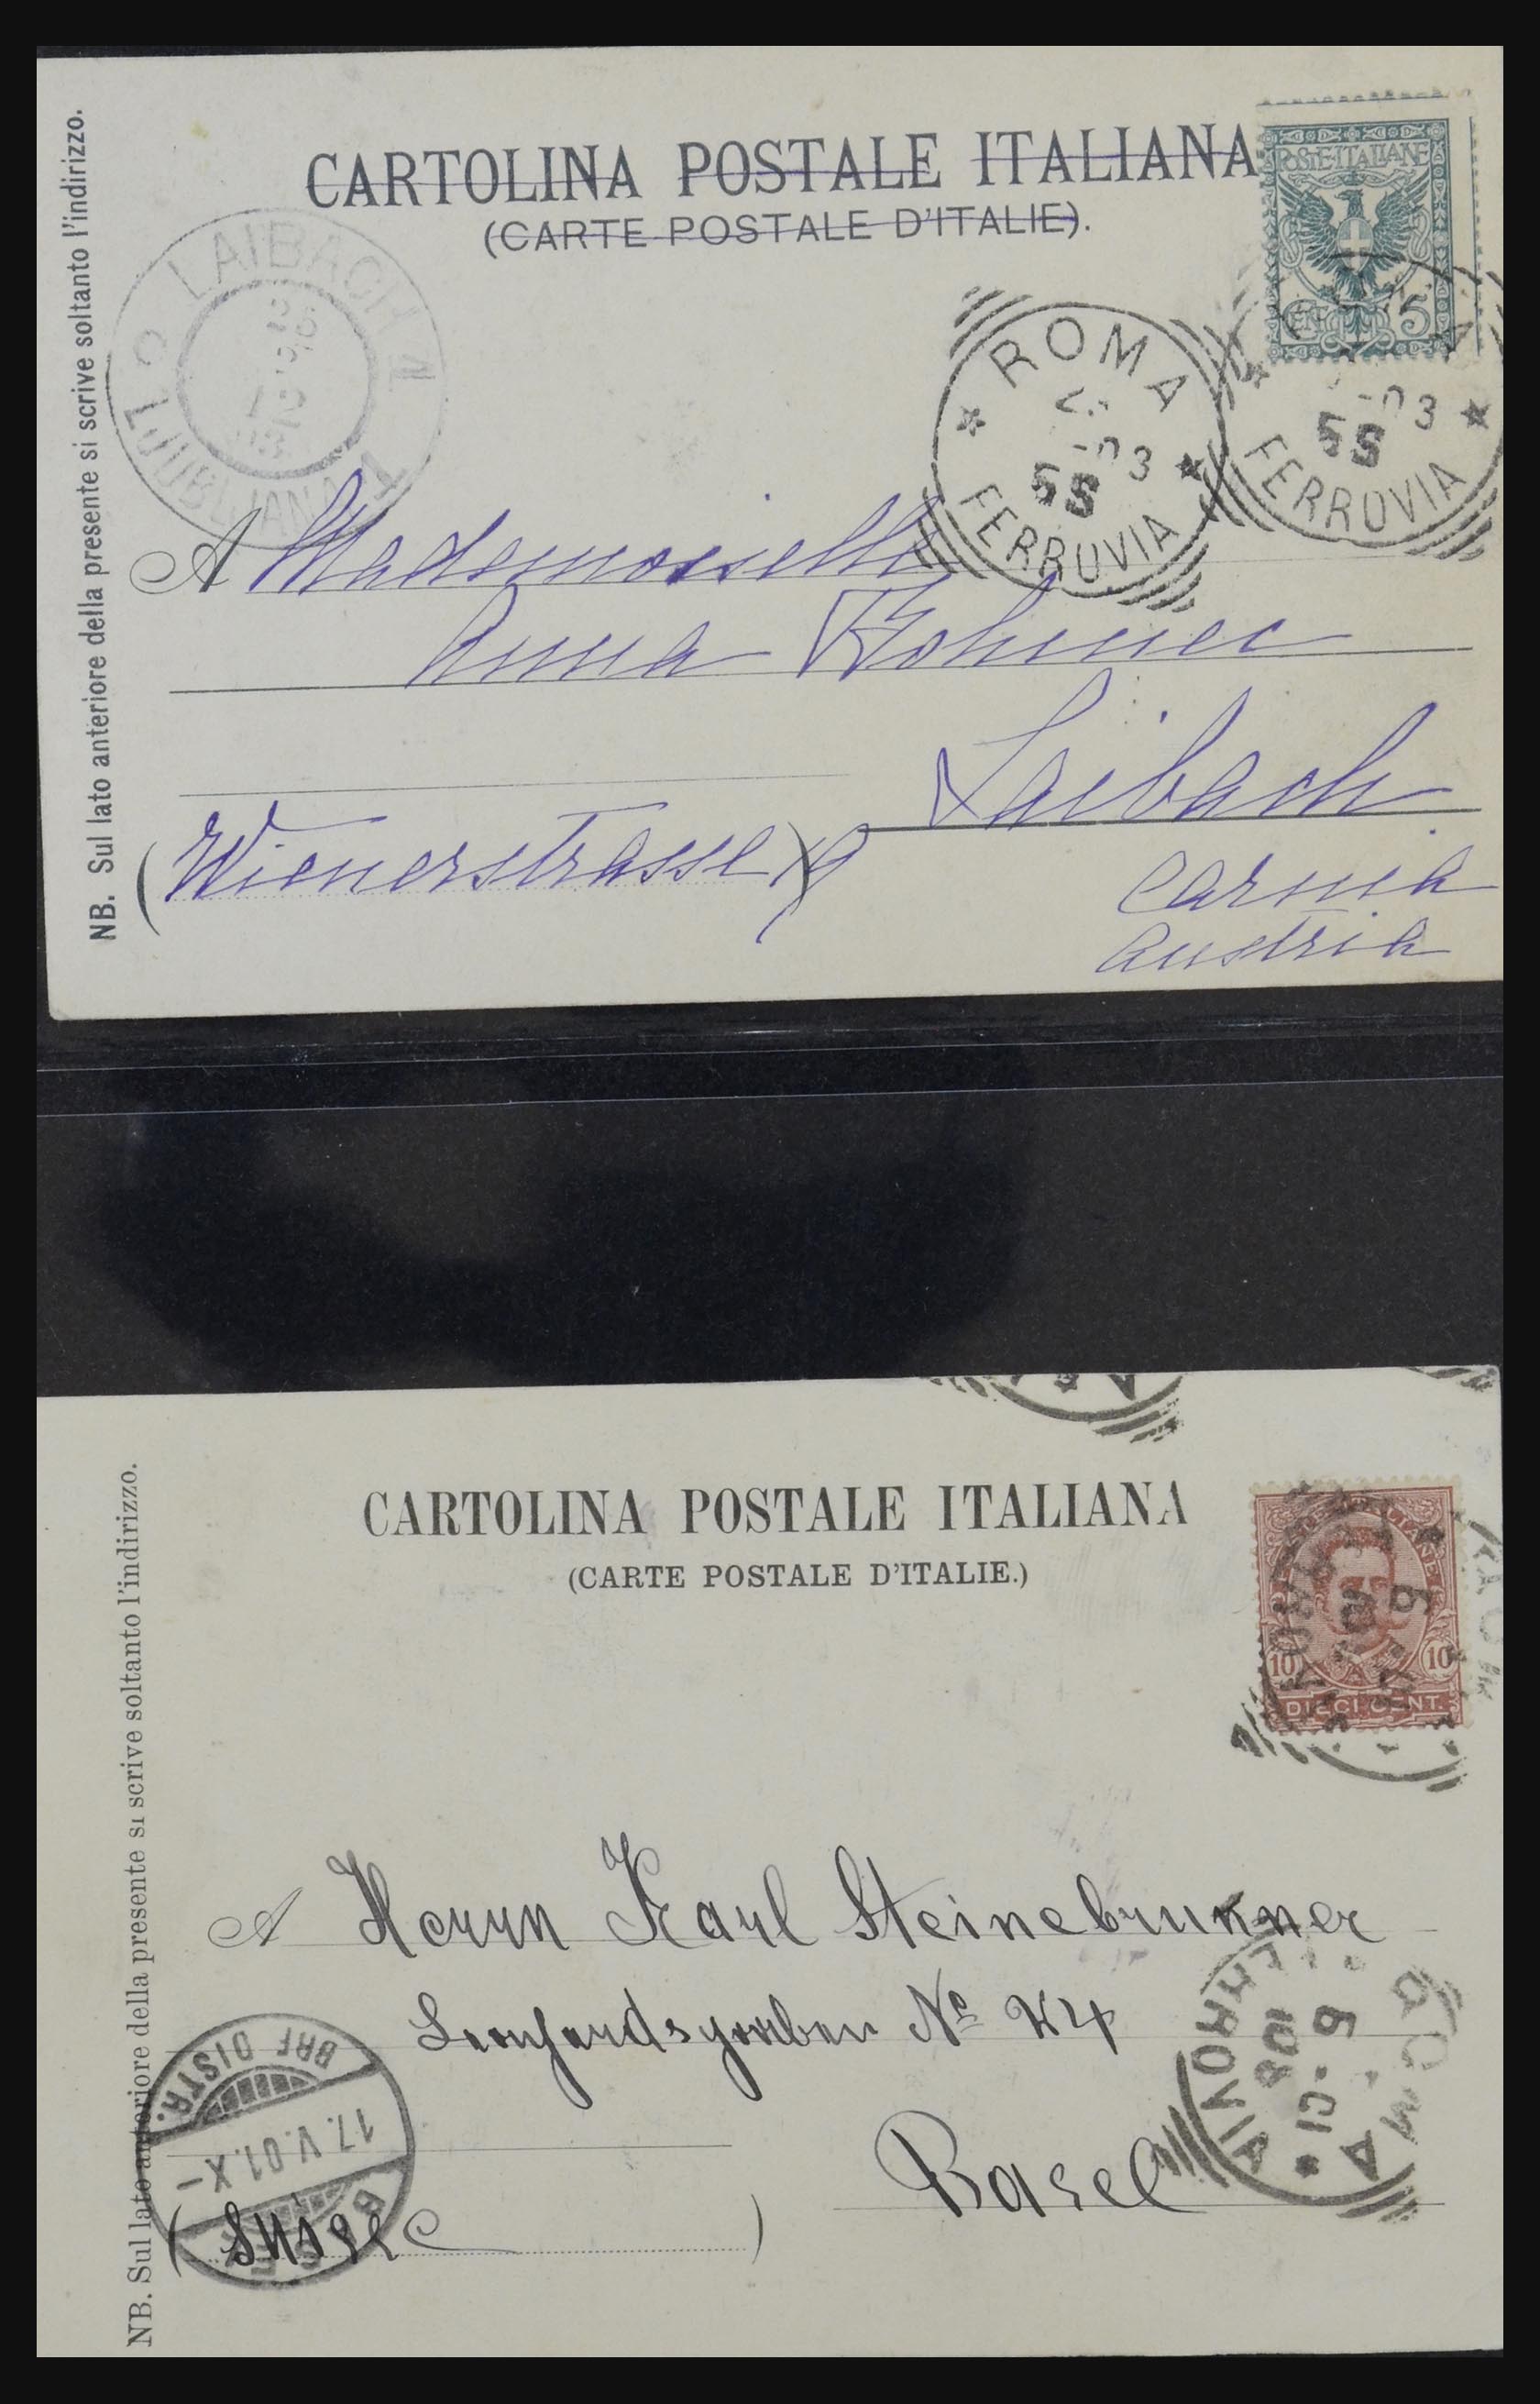 CARTOLINA POSTALE ITALIANA
(CARTE POSTALE D'ITALIE).
POSTE·ITALIANE
5
LAIBACH 1
LJUBLJANA 1
ROMA
-03
5S
FERROVIA
-03
5S
FERROVIA
NB. Sul lato anteriore della presente si scrive soltanto l'indirizzo.
A Mademoiselle
Anna
Laibach
(Wienerstrasse)
Austria
CARTOLINA POSTALE ITALIANA
(CARTE POSTALE D'ITALIE.)
10 10
DIECI CENT.
NB. Sul lato anteriore della presente si scrive soltanto l'indirizzo.
A Herrn Karl Steinebrunner
Leonhardsgraben No
Basel
(Suisse)
BRF DISTR.
17.V.01.X-
BASEL
ROMA
10S
FERROVIA